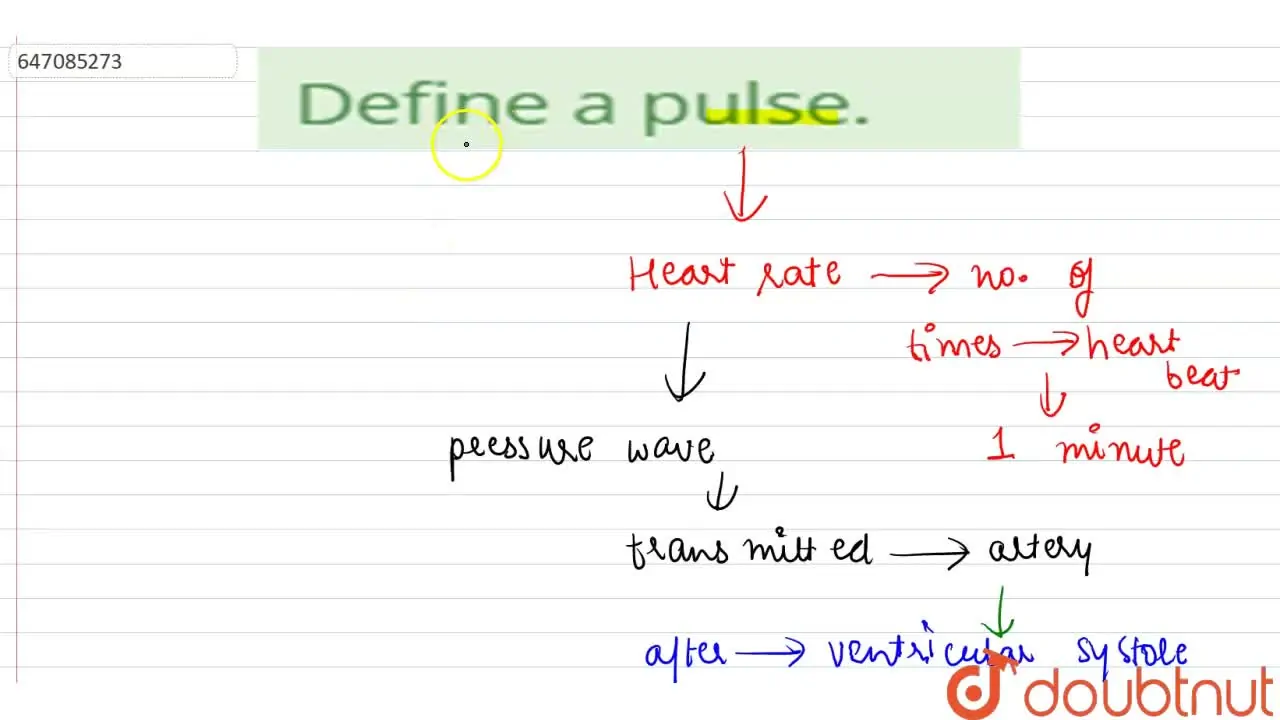 647085273
Define a pulse.
Heart rate → no. of
times → heart
beat
1 minute
pressure wave
transmitted → artery
after → ventricular systole
doubtnut